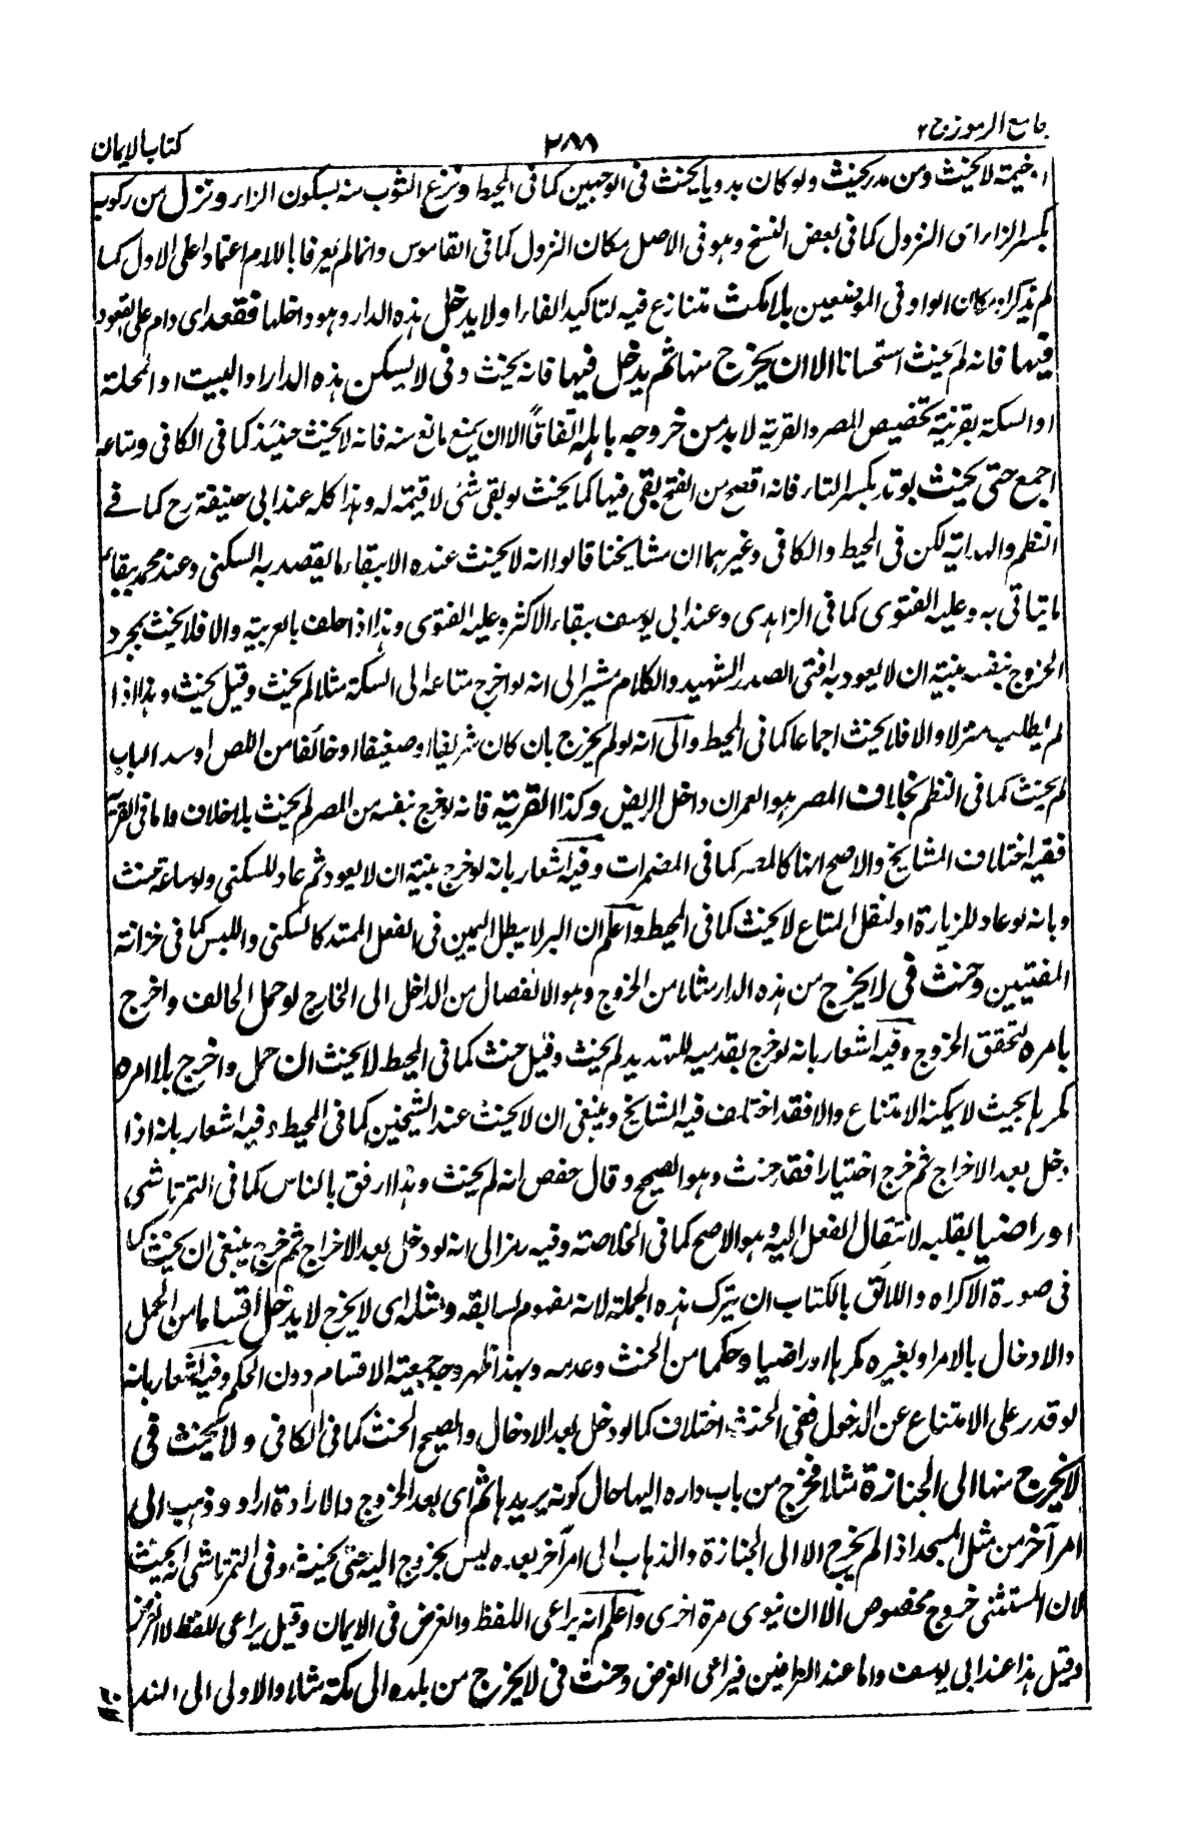 جامع الرموز ج ٢
٢٨٨
كتاب الايمان
خيمة لا يحنث ومن مدر يحنث ولو كان بدويا يحنث فى الوجهين كما فى المحيط ونزع الثوب منه بسكون الزاء ونزل من ركوبه
بكسر الزاء اى النزول كما فى بعض النسخ وهو فى الاصل مكان النزول كما فى القاموس وانما لم يعرفا باللام اعتمادا على الاول كما
لم يذكرا الواو فى الموضعين بلا مكث متنازع فيه لتاكيد الفاء او لا يدخل هذه الدار وهو داخلها فقعد اى دام على القعود
فيها فانه لم يحنث استحسانا الا ان يخرج منها ثم يدخل فيها فانه يحنث وفى لا يسكن هذه الدار او البيت او المحلة
او السكة بقرينة تخصيص المصر والقرية لا بد من خروجه باهله اتفاقاً الا ان يمنع مانع منه فانه لا يحنث حينئذ كما فى الكافى ومتاعه
اجمع حتى يحنث بوتد بكسر التاء فانه افصح من الفتح بقى فيها كما يحنث لو بقى شئ لا قيمة له وهذا كله عند ابى حنيفة رح كما فے
النظم والهداية لكن فى المحيط والكافى وغيرهما ان مشايخنا قالوا انه لا يحنث عنده الا ببقاء ما يقصد به السكنى وعند محمد ببقاء
ما يتاتى به وعليه الفتوى كما فى الزاهدى وعند ابى يوسف ببقاء الاكثر وعليه الفتوى وهذا اذا حلف بالعربية والا فلا يحنث بمجرد
الخروج بنفسه بنية ان لا يعود به افتى الصدر الشهيد والكلام مشير الى انه لو اخرج متاعه الى السكة مثلا لم يحنث وقيل يحنث وهذا اذا
لم يطلب منزلا والا فلا يحنث اجماعا كما فى المحيط والى انه لو لم يخرج بان كان شريفا او ضعيفا او خائفا من اللص او سد الباب
لم يحنث كما فى النظم بخلاف المصر هو العمران داخل الربض وكذا القرية فانه لو خرج بنفسه من المصر لم يحنث بلا خلاف واما فى القرية
ففيه اختلاف المشايخ والاصح انها كالمصر كما فى المضمرات وفيه اشعار بانه لو خرج بنية ان لا يعود ثم عاد للسكنى ولو ساعة حنث
وبانه لو عاد للزيارة او لنقل المتاع لا يحنث كما فى المحيط واعلم ان البر لا يبطل اليمين فى الفعل الممتد كالسكنى واللبس كما فى خزانة
المفتيين وحنث فى لا يخرج من هذه الدار مثلا من الخروج وهو الانفصال من الداخل الى الخارج لو حمل الحالف واخرج
بامره لتحقق الخروج وفيه اشعار بانه لو خرج بقدميه للتهديد لم يحنث وقيل حنث كما فى المحيط لا يحنث ان حمل واخرج بلا امره
مكرها بحيث لا يمكنه الامتناع والا فقد اختلف فيه المشايخ وينبغى ان لا يحنث عند الشيخين كما فى المحيط وفيه اشعار بانه اذا
دخل بعد الاخراج ثم خرج اختيارا فقد حنث وهو الصحيح وقال حفص انه لم يحنث وهذا ارفق بالناس كما فى التمرتاشى
او راضيا بقلبه لانتقال الفعل اليه وهو الاصح كما فى الخلاصة وفيه رمز الى انه لو دخل بعد الاخراج ثم خرج ينبغى ان يحنث كما
فى صورة الاكراه واللائق بالكتاب ان يترك هذه الجملة لانه مفهوم لسابقه ومثله اى لا يخرج لا يدخل اقساما من الحمل
والادخال بالامر وبغيره مكرها او راضيا وحكما من الحنث وعدمه وبهذا ظهر وجه جمعية الاقسام دون الحكم وفيه اشعار بانه
لو قدر على الامتناع عن الدخول ففى الحنث اختلاف كما لو دخل بعد الادخال والصحيح الحنث كما فى الكافى ولا يحنث فى
لا يخرج منها الى الجنازة مثلا فخرج من باب داره اليها حال كونه يريدها ثم اى بعد الخروج والارادة اراد وذهب الى
امر آخر من مثل المسجد اذا لم يخرج الا الى الجنازة والذهاب الى امر آخر بعده ليس بخروج اليه حتى يحنث وفى التمرتاشى انه يحنث
لان المستثنى خروج مخصوص الا ان ينوى مرة اخرى واعلم انه يراعى اللفظ والغرض فى الايمان وقيل يراعى للفظ لا الغرض
وقيل هذا عند ابى يوسف واما عند الطرفين فيراعى الغرض وحنث فى لا يخرج من بلده الى مكة مثلا والاولى الى الهند